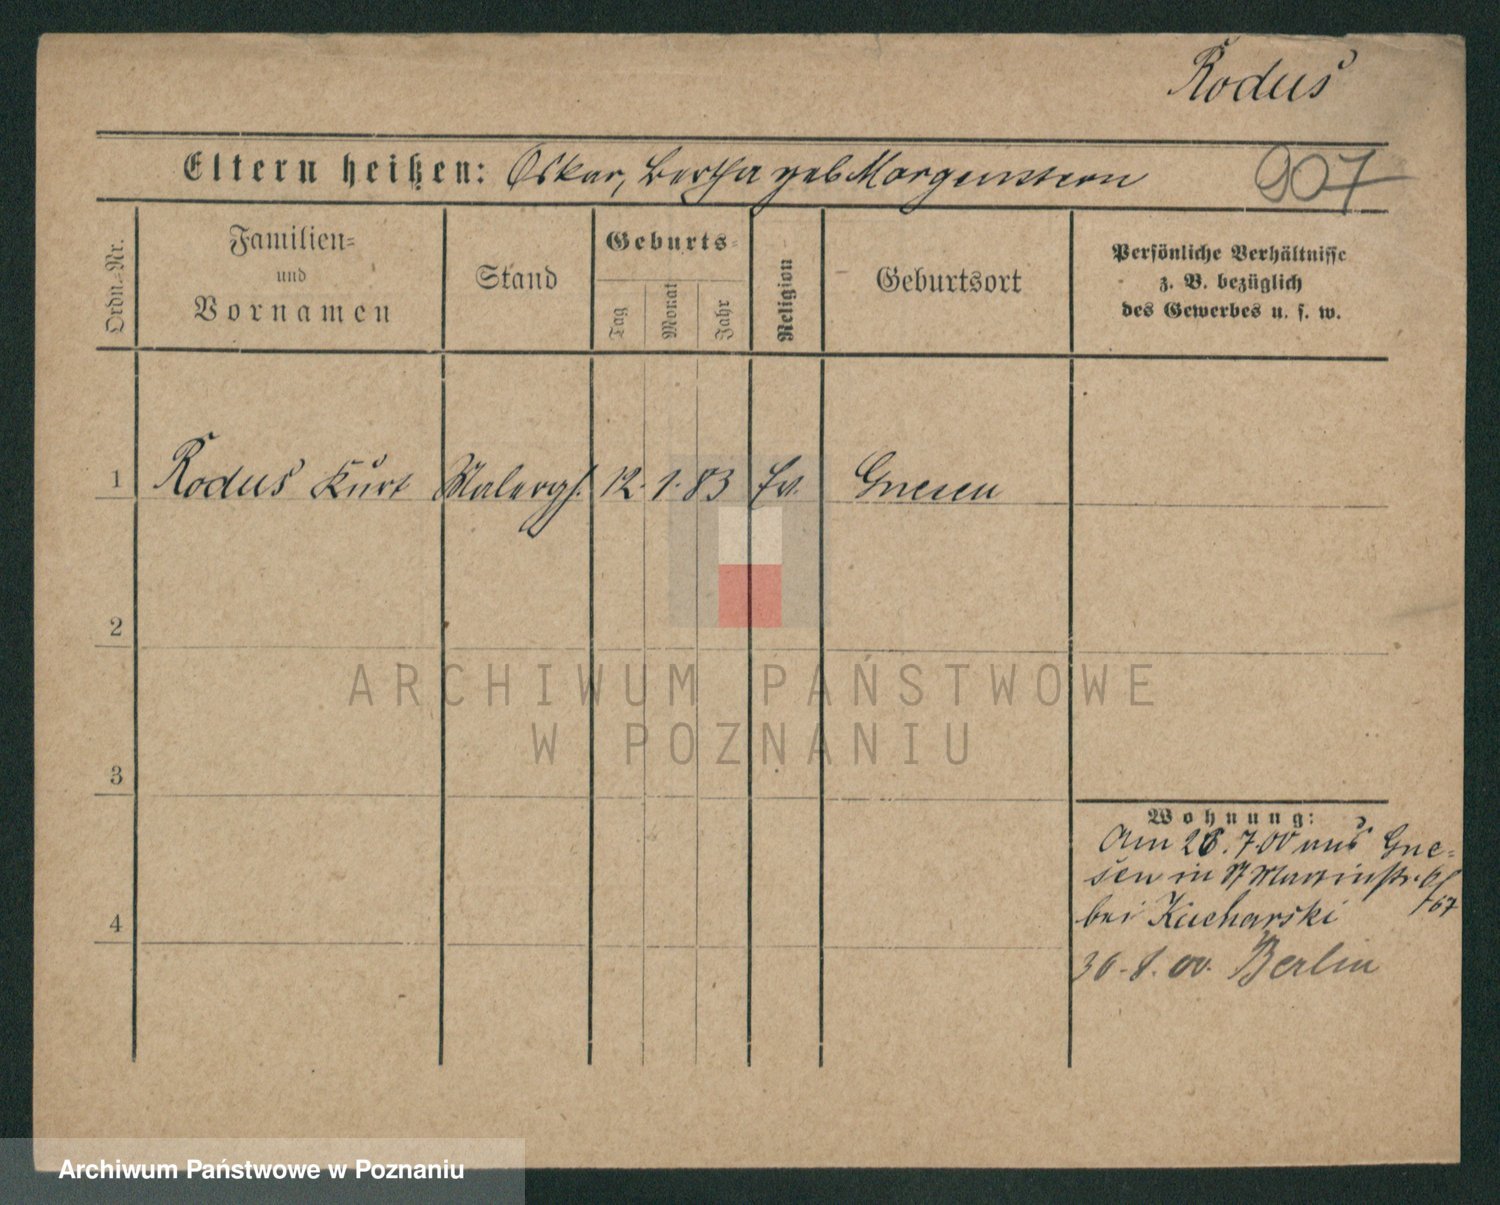 Rodus
Eltern heißen: Oskar, Bertha geb Morgenstern
907
Ordn.-Nr.
Familien=
und
Vornamen
Stand
Geburts=
Tag
Monat
Jahr
Religion
Geburtsort
Persönliche Verhältnisse
z. B. bezüglich
des Gewerbes u. s. w.
1 Rodus Kurt Malergh. 12. 1. 83 Ev. Gnesen
2
3
4
Wohnung:
Am 28. 7. 00 aus Gne=
sen in St Martinstr.
67
bei Kucharski
30. 8. 00. Berlin
ARCHIWUM PAŃSTWOWE
W POZNANIU
Archiwum Państwowe w Poznaniu